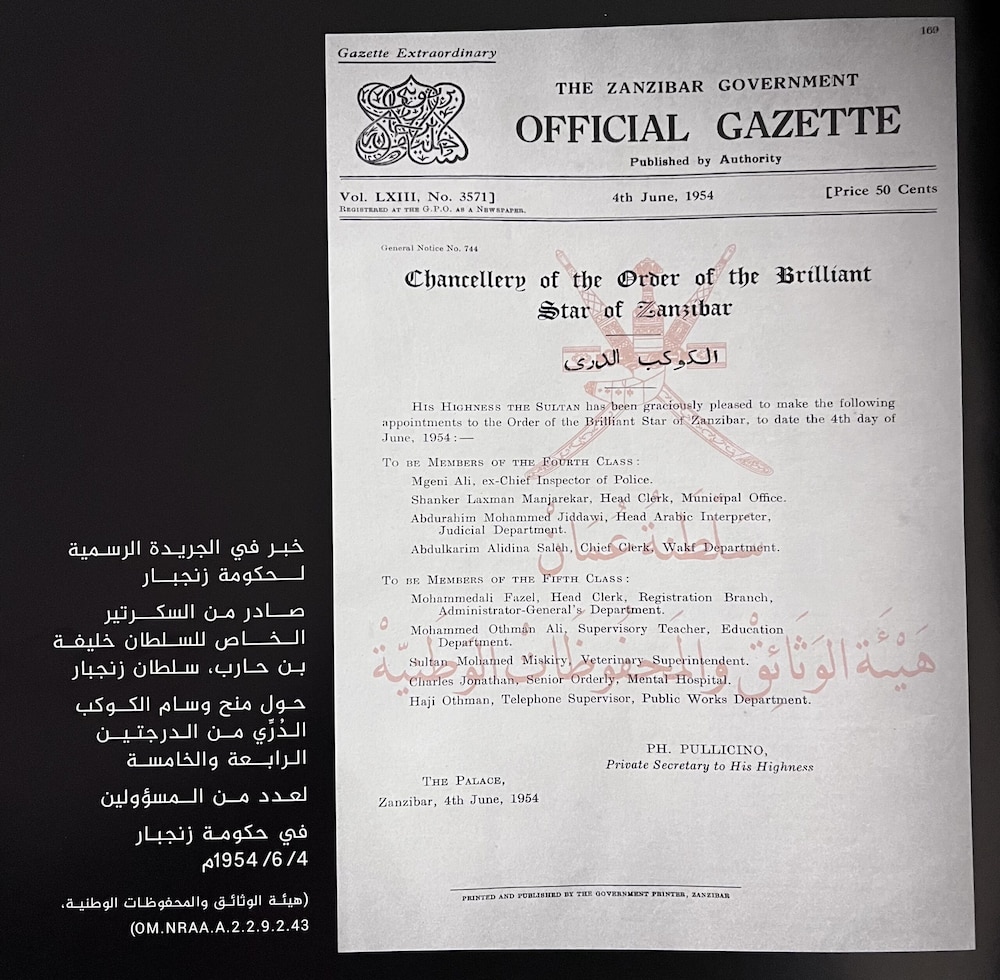 169
Gazette Extraordinary
THE ZANZIBAR GOVERNMENT
OFFICIAL GAZETTE
Published by Authority
Vol. LXIII, No. 3571]
4th June, 1954
[Price 50 Cents
REGISTERED AT THE G.P.O. AS A NEWSPAPER.
General Notice No. 744
Chancellery of the Order of the Brilliant
Star of Zanzibar
الكوكب الدرى
HIS HIGHNESS THE SULTAN has been graciously pleased to make the following
appointments to the Order of the Brilliant Star of Zanzibar, to date the 4th day of
June, 1954:—
TO BE MEMBERS OF THE FOURTH CLASS:
Mgeni Ali, ex-Chief Inspector of Police.
Shanker Laxman Manjarekar, Head Clerk, Municipal Office.
Abdurahim Mohammed Jiddawi, Head Arabic Interpreter,
Judicial Department.
Abdulkarim Alidina Saleh, Chief Clerk, Wakf Department.
سلطنة عمان
TO BE MEMBERS OF THE FIFTH CLASS:
Mohammedali Fazel, Head Clerk, Registration Branch,
Administrator-General's Department.
Mohammed Othman Ali, Supervisory Teacher, Education
Department.
Sultan Mohamed Miskiry, Veterinary Superintendent.
Charles Jonathan, Senior Orderly, Mental Hospital.
Haji Othman, Telephone Supervisor, Public Works Department.
هيئة الوثائق والمحفوظات الوطنية
PH. PULLICINO,
Private Secretary to His Highness
THE PALACE,
Zanzibar, 4th June, 1954
PRINTED AND PUBLISHED BY THE GOVERNMENT PRINTER, ZANZIBAR
خبر في الجريدة الرسمية
لحكومة زنجبار
صادر من السكرتير
الخاص للسلطان خليفة
بن حارب، سلطان زنجبار
حول منح وسام الكوكب
الدُرِّي من الدرجتين
الرابعة والخامسة
لعدد من المسؤولين
في حكومة زنجبار
1954/6/4م
(هيئة الوثائق والمحفوظات الوطنية،
OM.NRAA.A.2.2.9.2.43)